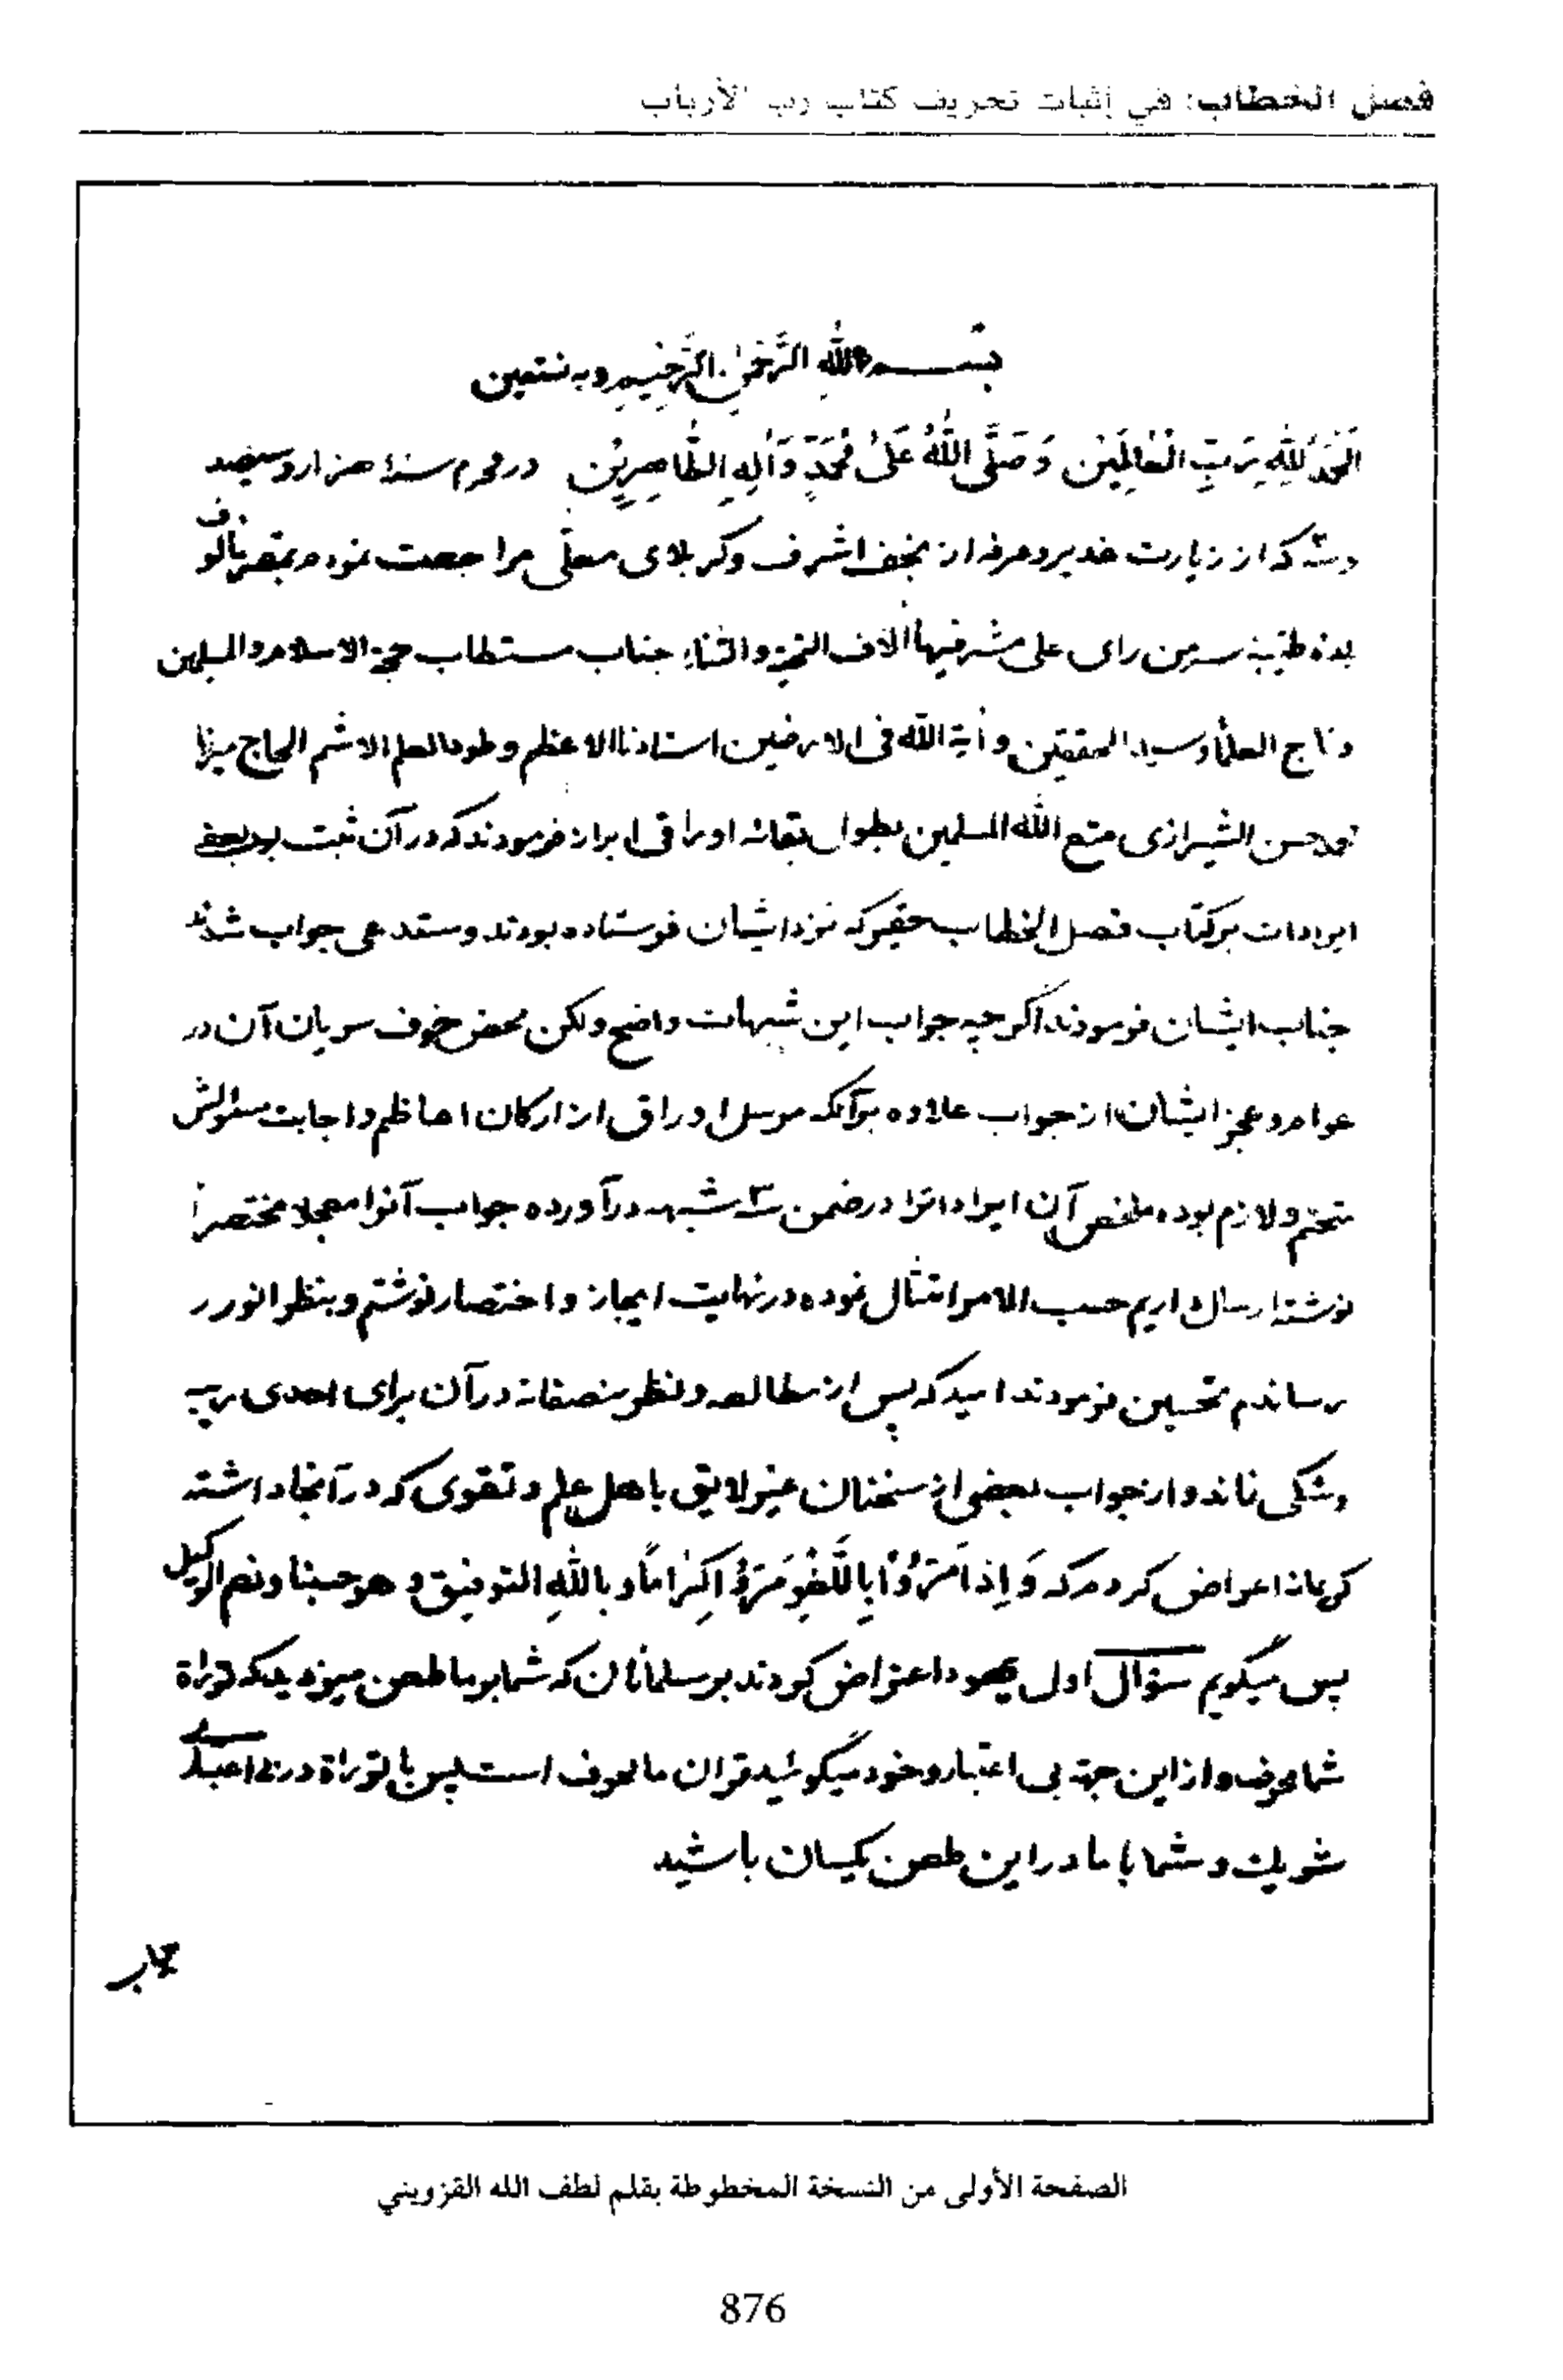 فصل الخطاب: في إثبات تحريف كتاب رب الأرباب
بسم الله الرحمن الرحيم وبه نستعين
اَلْحَمْدُ لِلّٰهِ رَبِّ الْعٰالَمِيْنَ وَ صَلَّى اللّٰهُ عَلىٰ مُحَمَّدٍ وَاٰلِهِ الطّٰاهِرِيْن در محرم سنهٔ هزار و سیصد
وسه که از زیارت غدیر و عرفه از نجف اشرف و کربلای معلّی مراجعت نموده بمقر مألوف
بلده طیّبه سر من رای علی مشرفیها الاف التحیّة والثناء جناب مستطاب حجة الاسلام و المسلمین
و تاج العلماء و سید المحققین و اٰیة اللّٰه فی الارضین استادنا الاعظم و طودالعلم الاشم الحاج میرزا
محمد حسن الشیرازی متع اللّٰه المسلمین بطول بقائه اوراقی ابراز فرمودند که در آن ثبت بود بعضی
ایرادات بر کتاب فصل الخطاب حقیر که نزد ایشان فرستاده بودند و مستدعی جواب شدند
جناب ایشان فرمودند اگر چه جواب این شبهات واضح ولکن محض خوف سریان آن در
عوام و عجز ایشان از جواب علاوه بر آنکه مرسل اوراق از ارکان اعاظم و اجابت مسئولش
متحتم و لازم بوده ملخص آن ایراداترا در ضمن سه شبهه در آورده جواب آنرا معجلا مختصراً
نوشته ارسال داریم حسب الامر امتثال نموده در نهایت ایجاز و اختصار نوشتم و بنظر انور
رساندم تحسین فرمودند امید که پس از مطالعه و نظر منصفانه در آن برای احدی ریب
وشکی نماند و از جواب بعضی از سخنان غیر لایق باهل علم و تقوی که در آنجا داشته
کریمانه اعراض کردم که وَ اِذٰا مَرُّوْا بِاللَّغْوِ مَرُّوْا كِرٰامًا و باللّٰهِ التوفیق و هو حسبنا و نعم الوکیل
پس میگویم سؤال اول یهود اعتراض کردند بر مسلمانان که شما بر ما طعن میزنید که توراة
شما محرف و از این جهة بی اعتبار و خود میگوئید قران ما محرف است پس با توراة در بی اعتباری
شریك و شما با ما در این طعن یکسان باشید
الصفحة الأولى من النسخة المخطوطة بقلم لطف الله القزويني
876